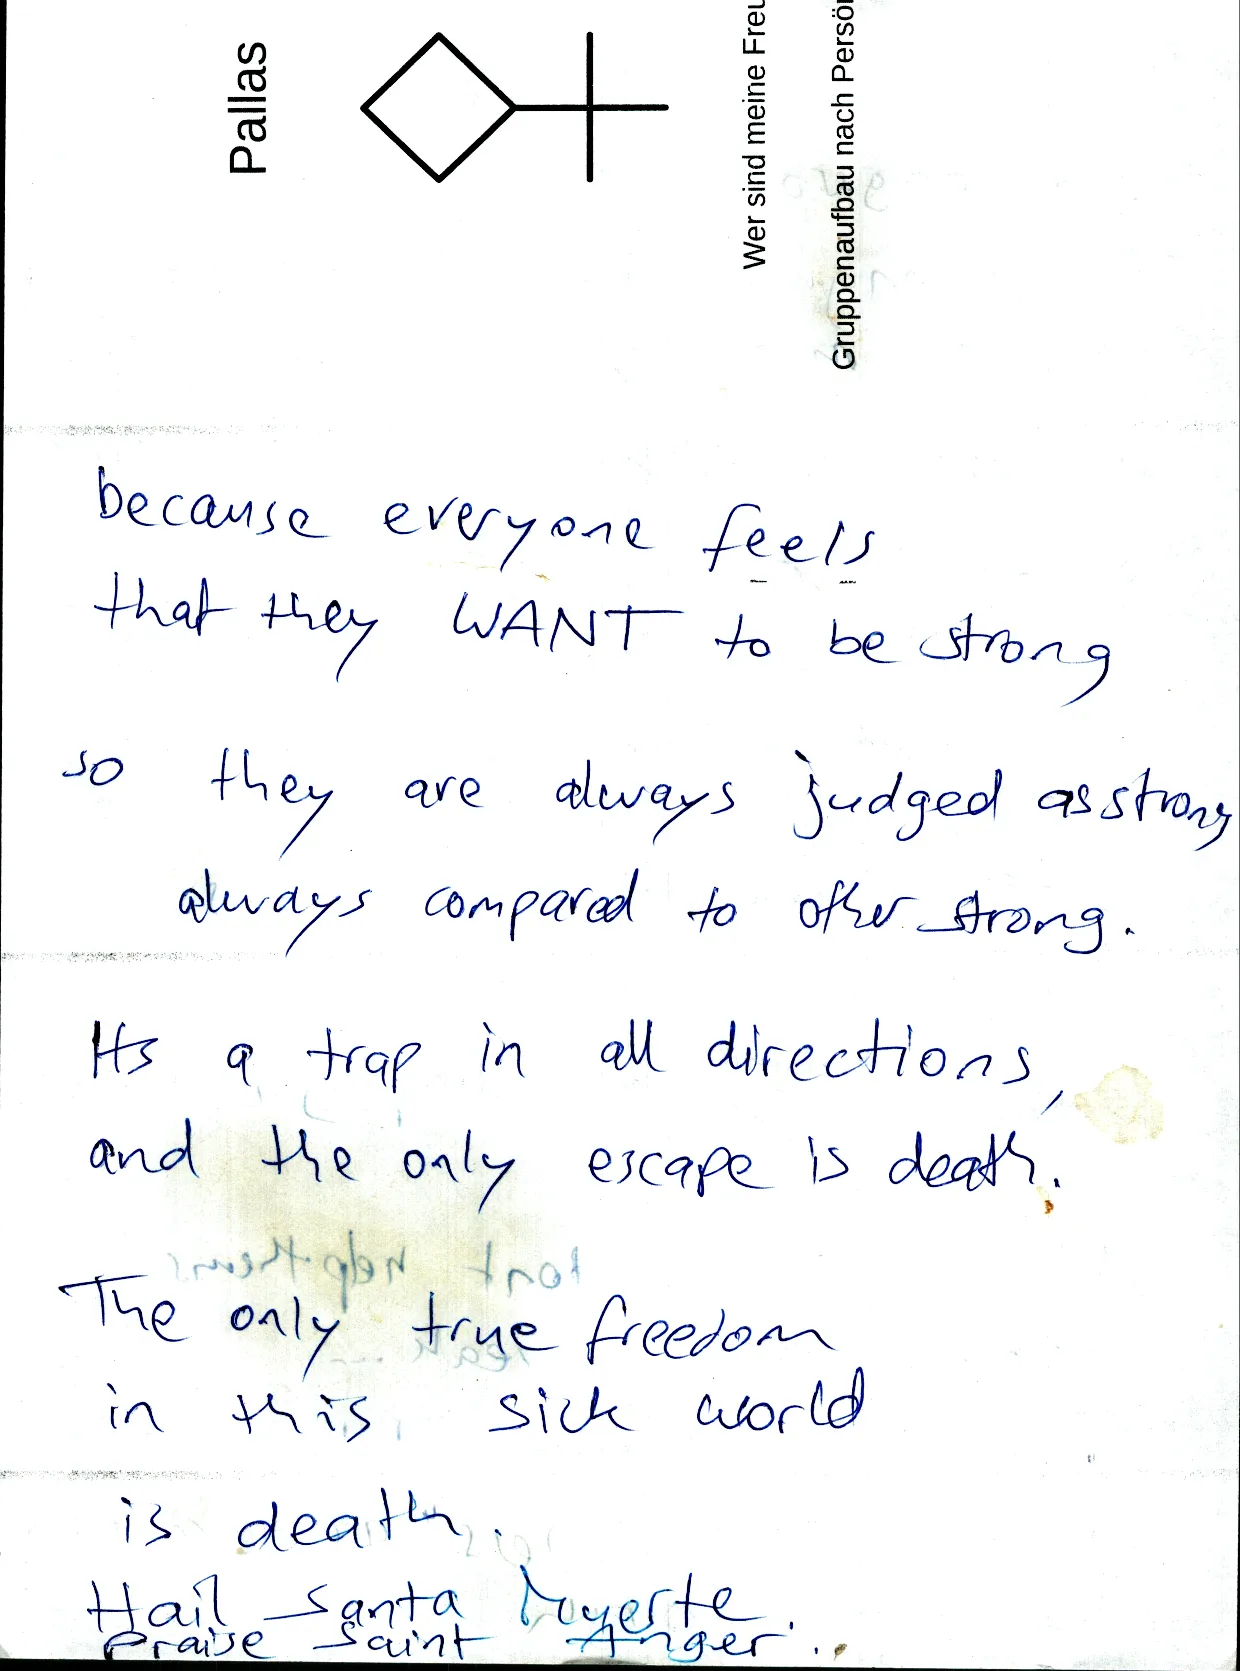 Pallas
Wer sind meine Freu
Gruppenaufbau nach Persö
because everyone feels
that they WANT to be strong
so they are always judged as strong
always compared to other strong.
Its a trap in all directions,
and the only escape is death.
The only true freedom
in this sick world
is death.
Hail Santa Myerte.
Praise Saint Anger.